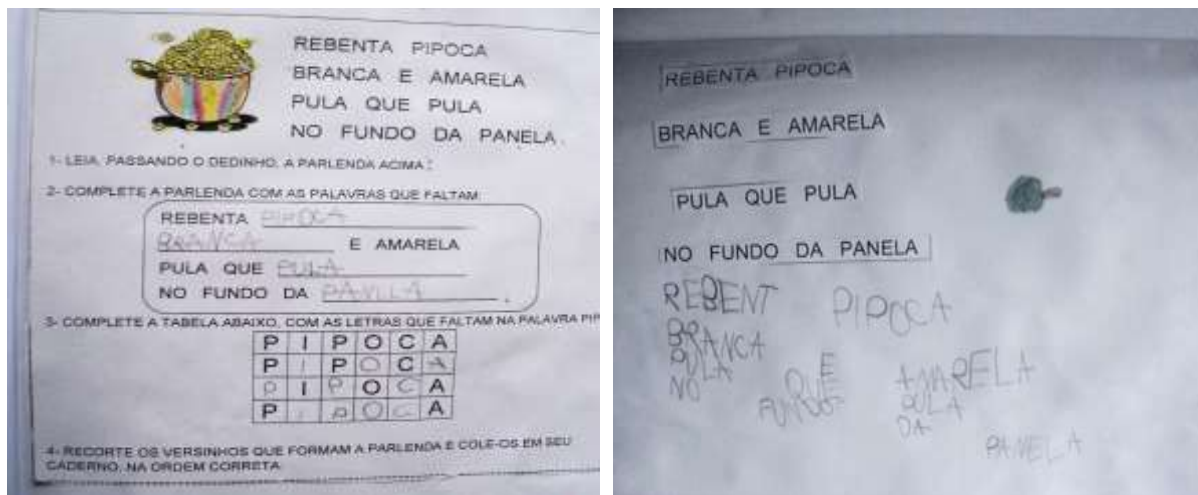 REBENTA PIPOCA
BRANCA E AMARELA
PULA QUE PULA
NO FUNDO DA PANELA.
1- LEIA, PASSANDO O DEDINHO, A PARLENDA ACIMA:
2- COMPLETE A PARLENDA COM AS PALAVRAS QUE FALTAM:
REBENTA PIPOCA
BRANCA E AMARELA
PULA QUE PULA
NO FUNDO DA PANELA.
3- COMPLETE A TABELA ABAIXO, COM AS LETRAS QUE FALTAM NA PALAVRA PIP
P I P O C A
P I P O C A
P I P O C A
P I P O C A
4- RECORTE OS VERSINHOS QUE FORMAM A PARLENDA E COLE-OS EM SEU
CADERNO, NA ORDEM CORRETA.
REBENTA PIPOCA
BRANCA E AMARELA
PULA QUE PULA
NO FUNDO DA PANELA
REBENT PIPOCA
BRANCA E AMARELA
PULA QUE PULA
NO FUNDO DA PANELA